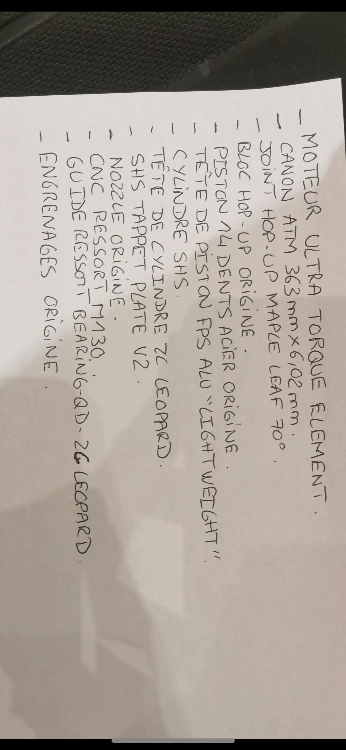 - MOTEUR ULTRA TORQUE ELEMENT.
- CANON ATM 363mm x 6,02 mm.
- JOINT HOP-UP MAPLE LEAF 70°.
- BLOC HOP-UP ORIGINE.
- PISTON 14 DENTS ACIER ORIGINE.
- TÊTE DE PISTON FPS ALU "LIGHTWEIGHT".
- CYLINDRE SHS.
- TÊTE DE CYLINDRE ZC LEOPARD.
- SHS TAPPET PLATE V2.
- NOZZLE ORIGINE.
- CNC RESSORT M130.
- GUIDE RESSORT BEARING-QD-ZC LEOPARD.
- ENGRENAGES ORIGINE.